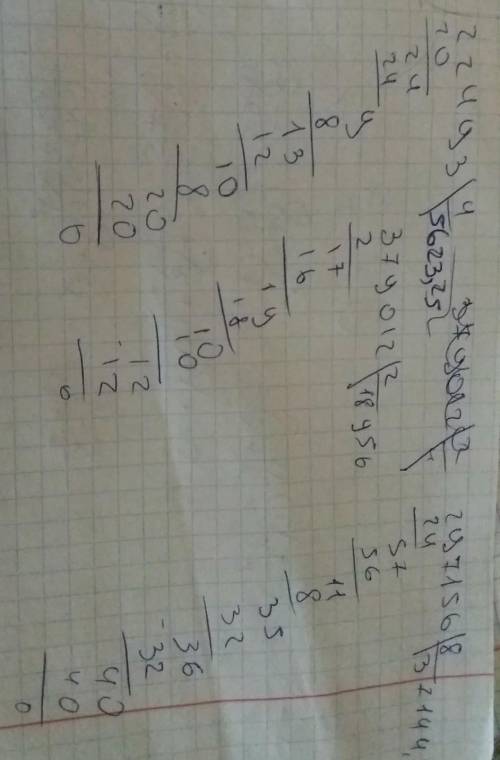 22493 4
20 5623,25
24
24
9
8
13
12
10
8
20
20
0
379012 2
2 18956
17
16
19
18
10
10
12
-12
0
297156 8
24 37144,
57
56
11
8
35
32
36
-32
40
40
0